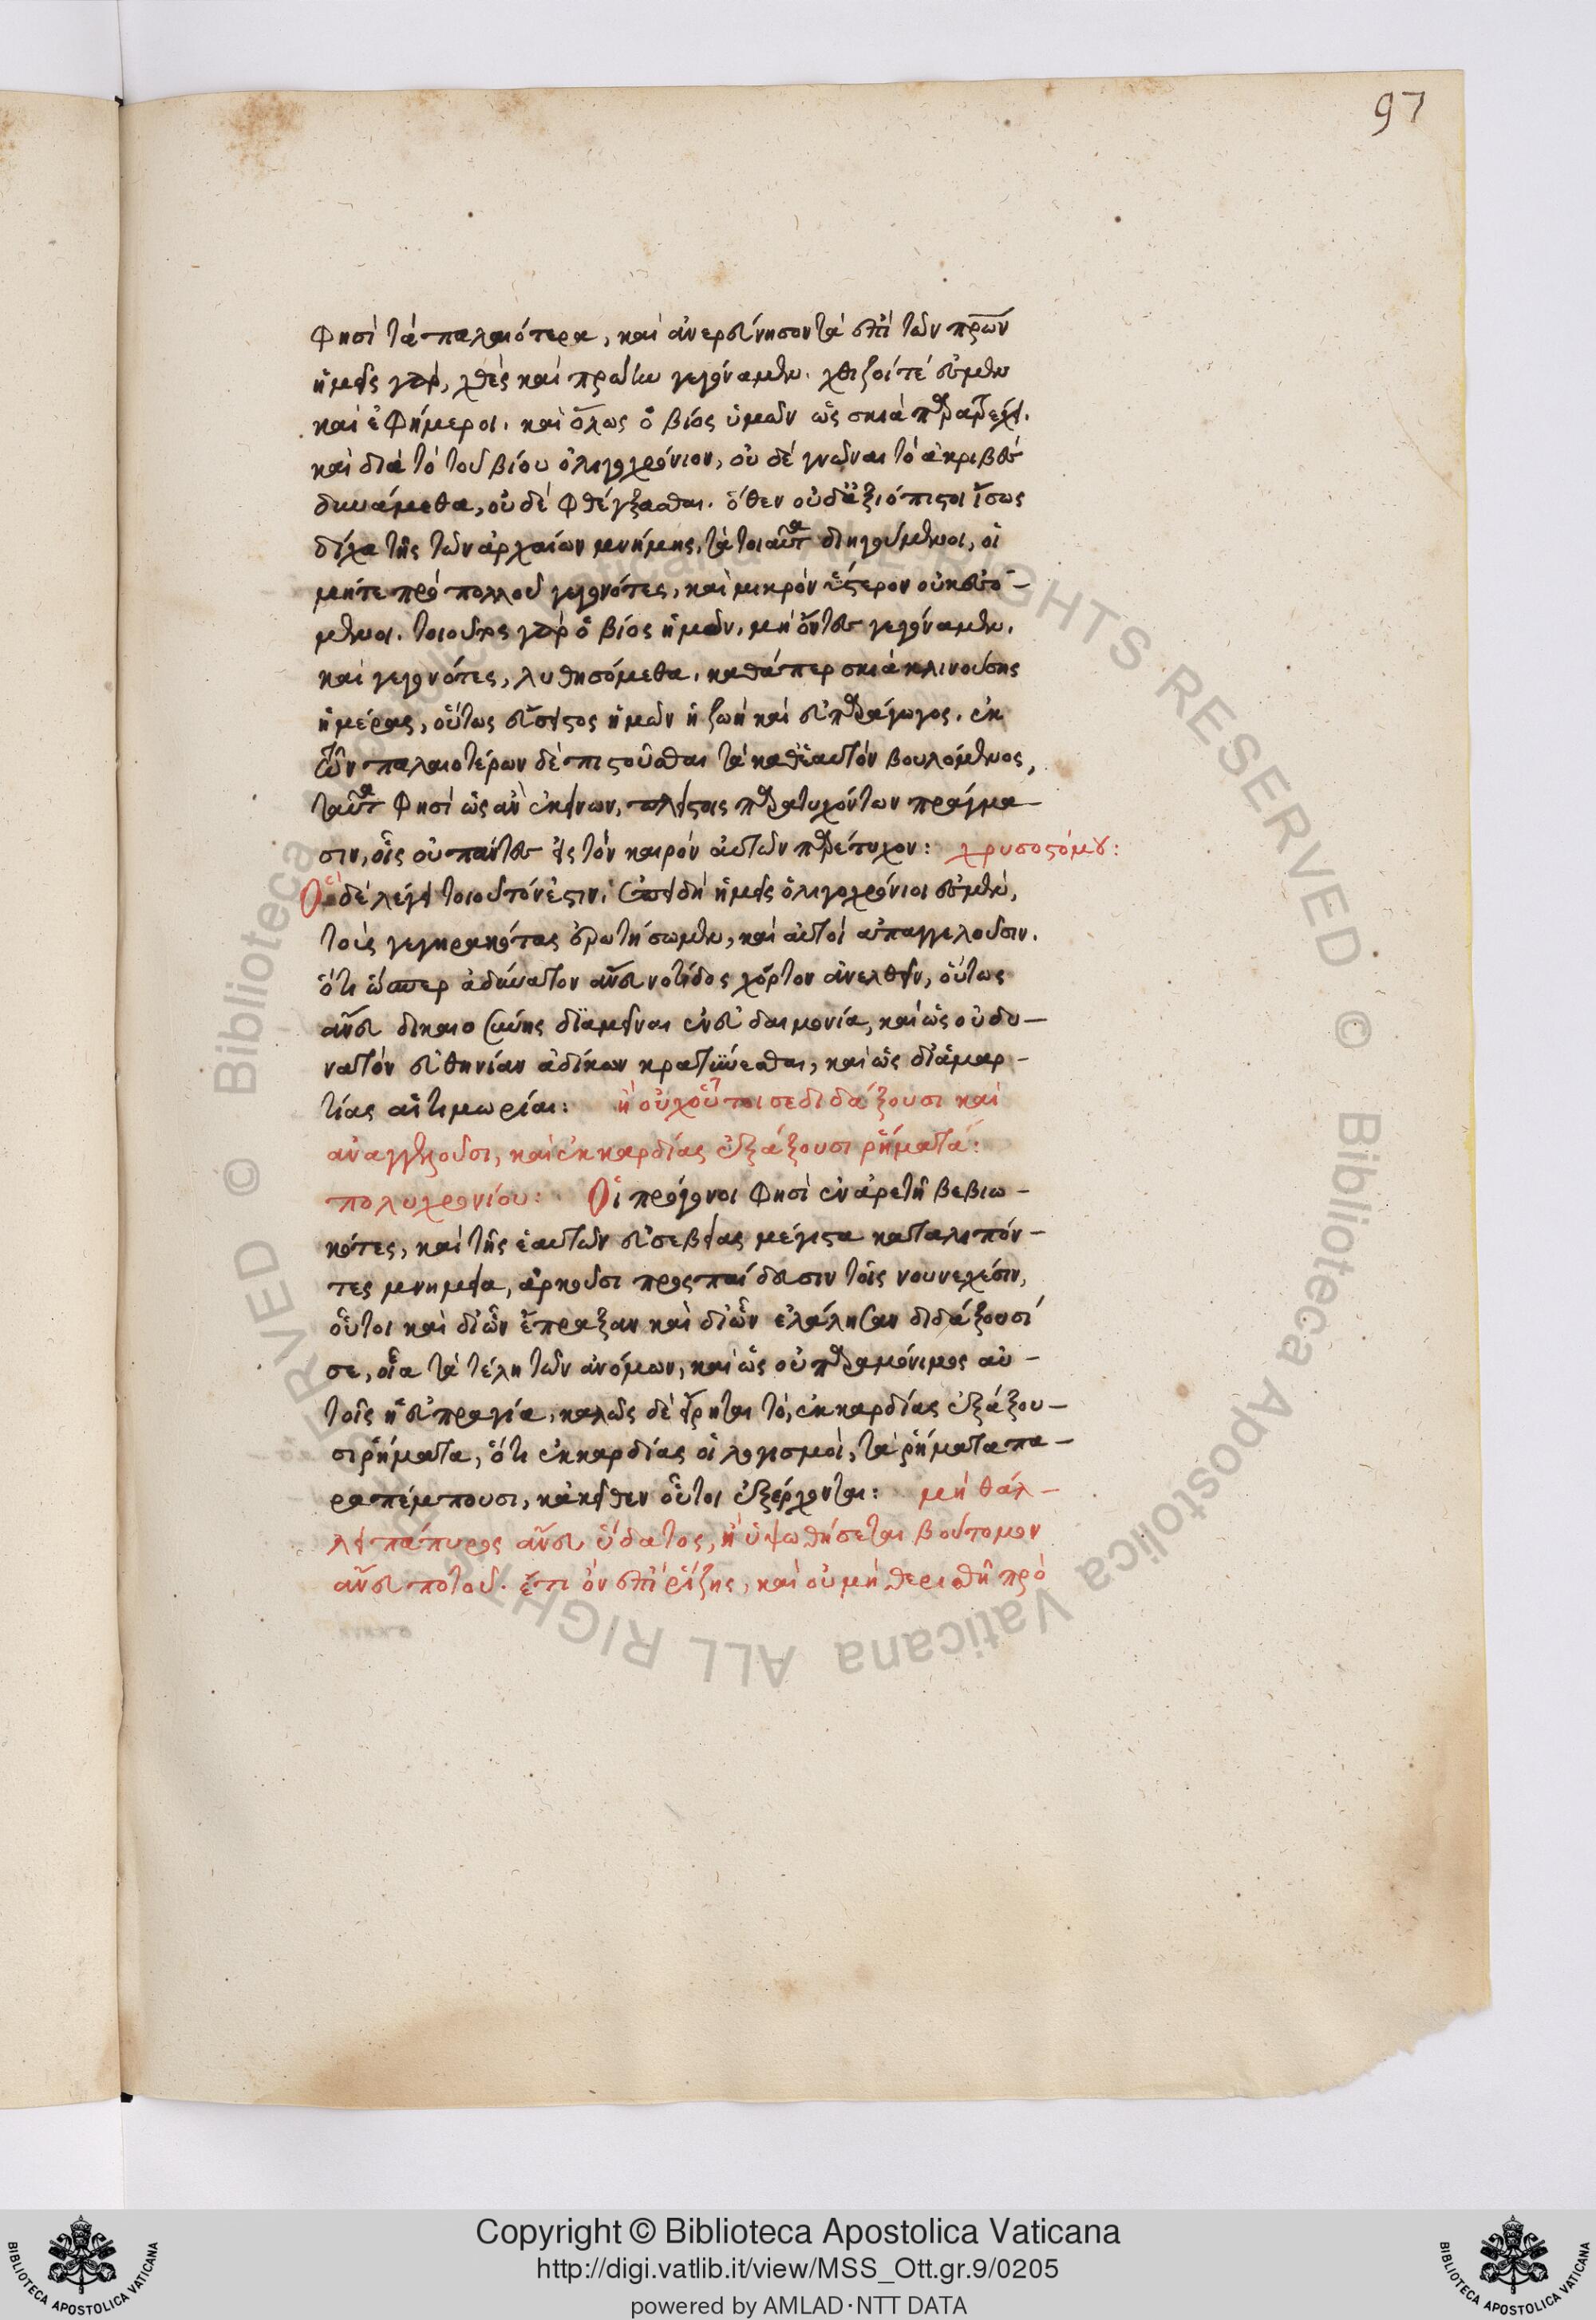 97
φησὶ τὰ παλαιότερα, καὶ ἀνερεύνησον τὰ ἐπὶ τῶν πρων
ἡμεῖς γὰρ, χθὲς καὶ πρώην γεγόναμεν. χθιζοί τέ ἐσμεν
καὶ ἐφήμεροι. καὶ ὅλως ὁ βίος ὑμῶν ὡς σκιὰ παρατρέχει.
καὶ διὰ τὸ τοῦ βίου ὀλιγοχρόνιον, οὐδὲ γνῶναι τὸ ἀκριβὲς
δυνάμεθα, οὐδὲ φθέγξασθαι. ὅθεν οὐδ' ἀξιόπιστοι ἴσως
δίχα τῆς τῶν ἀρχαίων μνήμης, τὰ τοιαῦτα διηγούμενοι, οἱ
μήτε πρὸ πολλοῦ γεγονότες, καὶ μικρὸν ὕστερον οὐκ ἐσό-
μενοι. τοιοῦτος γὰρ ὁ βίος ἡμῶν, μὴ ὄντες γεγόναμεν.
καὶ γεγονότες, λυθησόμεθα. καθάπερ σκιὰ κλινούσης
ἡμέρας, οὕτως ἄστατος ἡμῶν ἡ ζωὴ καὶ εὐπαράγωγος. ἐκ
τῶν παλαιοτέρων δὲ πιστοῦσθαι τὰ καθ' ἑαυτὸν βουλόμενος,
ταῦτα φησὶ ὡς ἂν ἐκείνων, πλείστοις παρατυχόντων πράγμα-
σιν, οἷς οὐ πάντες εἰς τὸν καιρὸν αὐτῶν παρέτυχον: χρυσοστόμου:
Ὃ δὲ λέγει τοιοῦτόν ἐστιν. ἐπειδὴ ἡμεῖς ὀλιγοχρόνιοι ἐσμεν,
τοὺς γεγηρακότας ἐρωτήσωμεν, καὶ αὐτοὶ ἀπαγγελοῦσιν.
ὅτι ὥσπερ ἀδύνατον ἄνευ νοτίδος χόρτον ἀνελθεῖν, οὕτως
ἄνευ δικαιοσύνης διαμεῖναι ἐν εὐδαιμονία, καὶ ὡς οὐ δυ-
νατὸν εὐθηνίαν ἀδίκων κρατύνεσθαι, καὶ ὡς δι' ἁμαρ-
τίας αἱ τιμωρίαι: ἢ οὐχ οὗτοι σε διδάξουσι καὶ
ἀναγγελοῦσι, καὶ ἐκ καρδίας ἐξάξουσι ῥήματα:
πολυχρονίου: Οἱ πρόγονοι φησὶ ἐν ἀρετῆ βεβιω-
κότες, καὶ τῆς ἑαυτῶν εὐσεβείας μέγιστα καταλιπόν-
τες μνημεῖα, ἀρκοῦσι πρὸς παίδευσιν τοῖς νουνεχέσιν,
οὗτοι καὶ δι' ὧν ἔπραξαν καὶ δι' ὧν ἐλάλησαν διδάξουσί
σε, οἷα τὰ τέλη τῶν ἀνόμων, καὶ ὡς οὐ παραμόνιμος αὐ-
τοῖς ἡ εὐπραγία. καλῶς δὲ εἴρηται τὸ, ἐκ καρδίας ἐξάξου-
σι ῥήματα, ὅτι ἐκ καρδίας οἱ λογισμοὶ, τὰ ῥήματα πα-
ραπέμπουσι, κἀκεῖθεν οὗτοι ἐξέρχονται: μὴ θάλ-
λει πάπυρος ἄνευ ὕδατος, ἢ ὑψωθήσεται βούτομον
ἄνευ ποτοῦ. ἔτι ὂν ἐπὶ ῥίζης, καὶ οὐ μὴ θερισθῆ πρὸ
Copyright © Biblioteca Apostolica Vaticana
http://digi.vatlib.it/view/MSS_Ott.gr.9/0205
powered by AMLAD·NTT DATA